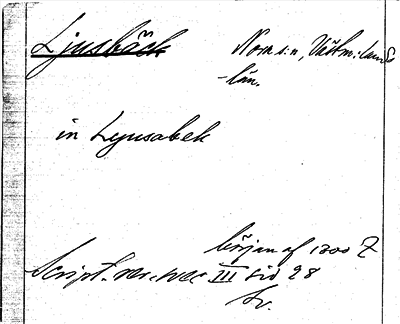 Ljusbäck Nora s:n, Västm:lands
-län.
in Lyusabek
början af 1200 t
Script. rer. svec. III sid 28
Sv.